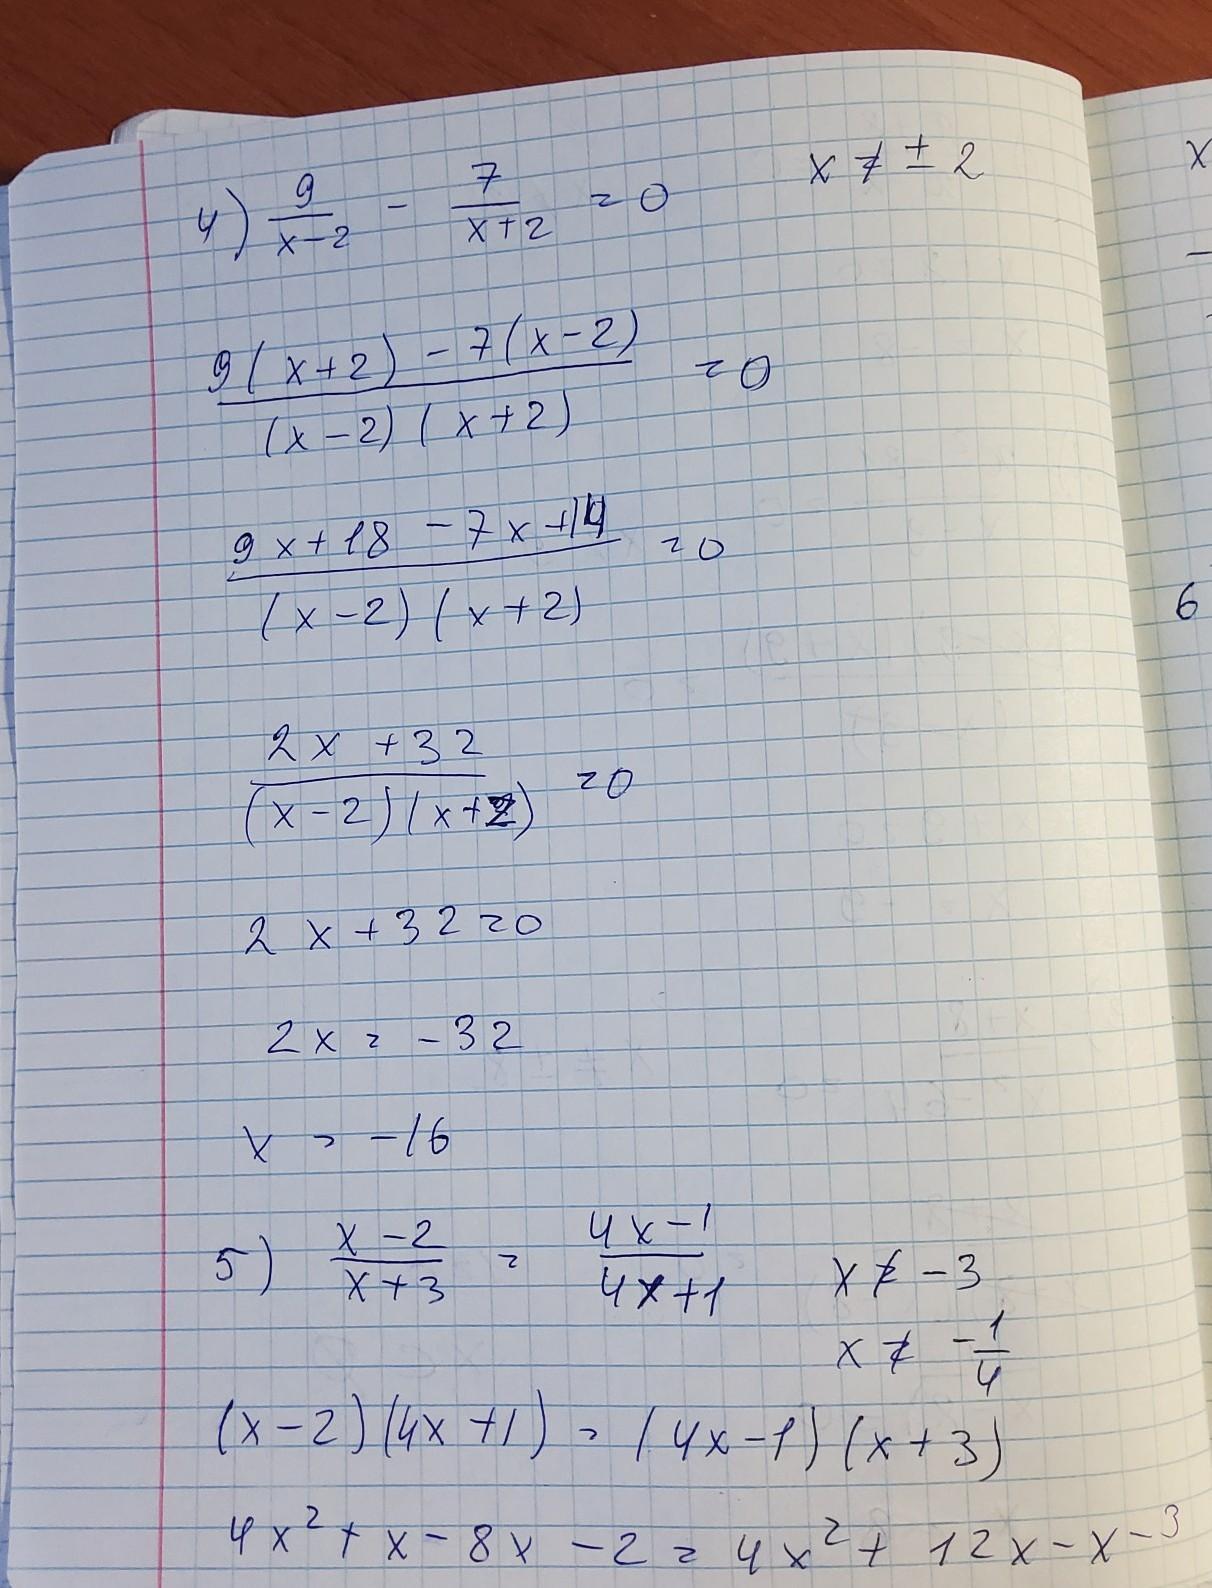 4) 9/(x-2) - 7/(x+2) = 0 x ≠ ± 2
(9(x+2) - 7(x-2))/((x-2)(x+2)) = 0
(9x+18 - 7x+14)/((x-2)(x+2)) = 0
(2x+32)/((x-2)(x+2)) = 0
2x+32=0
2x = -32
x = -16
5) (x-2)/(x+3) = (4x-1)/(4x+1) x ≠ -3
x ≠ -1/4
(x-2)(4x+1) = (4x-1)(x+3)
4x²+x-8x-2 = 4x²+12x-x-3
x
6